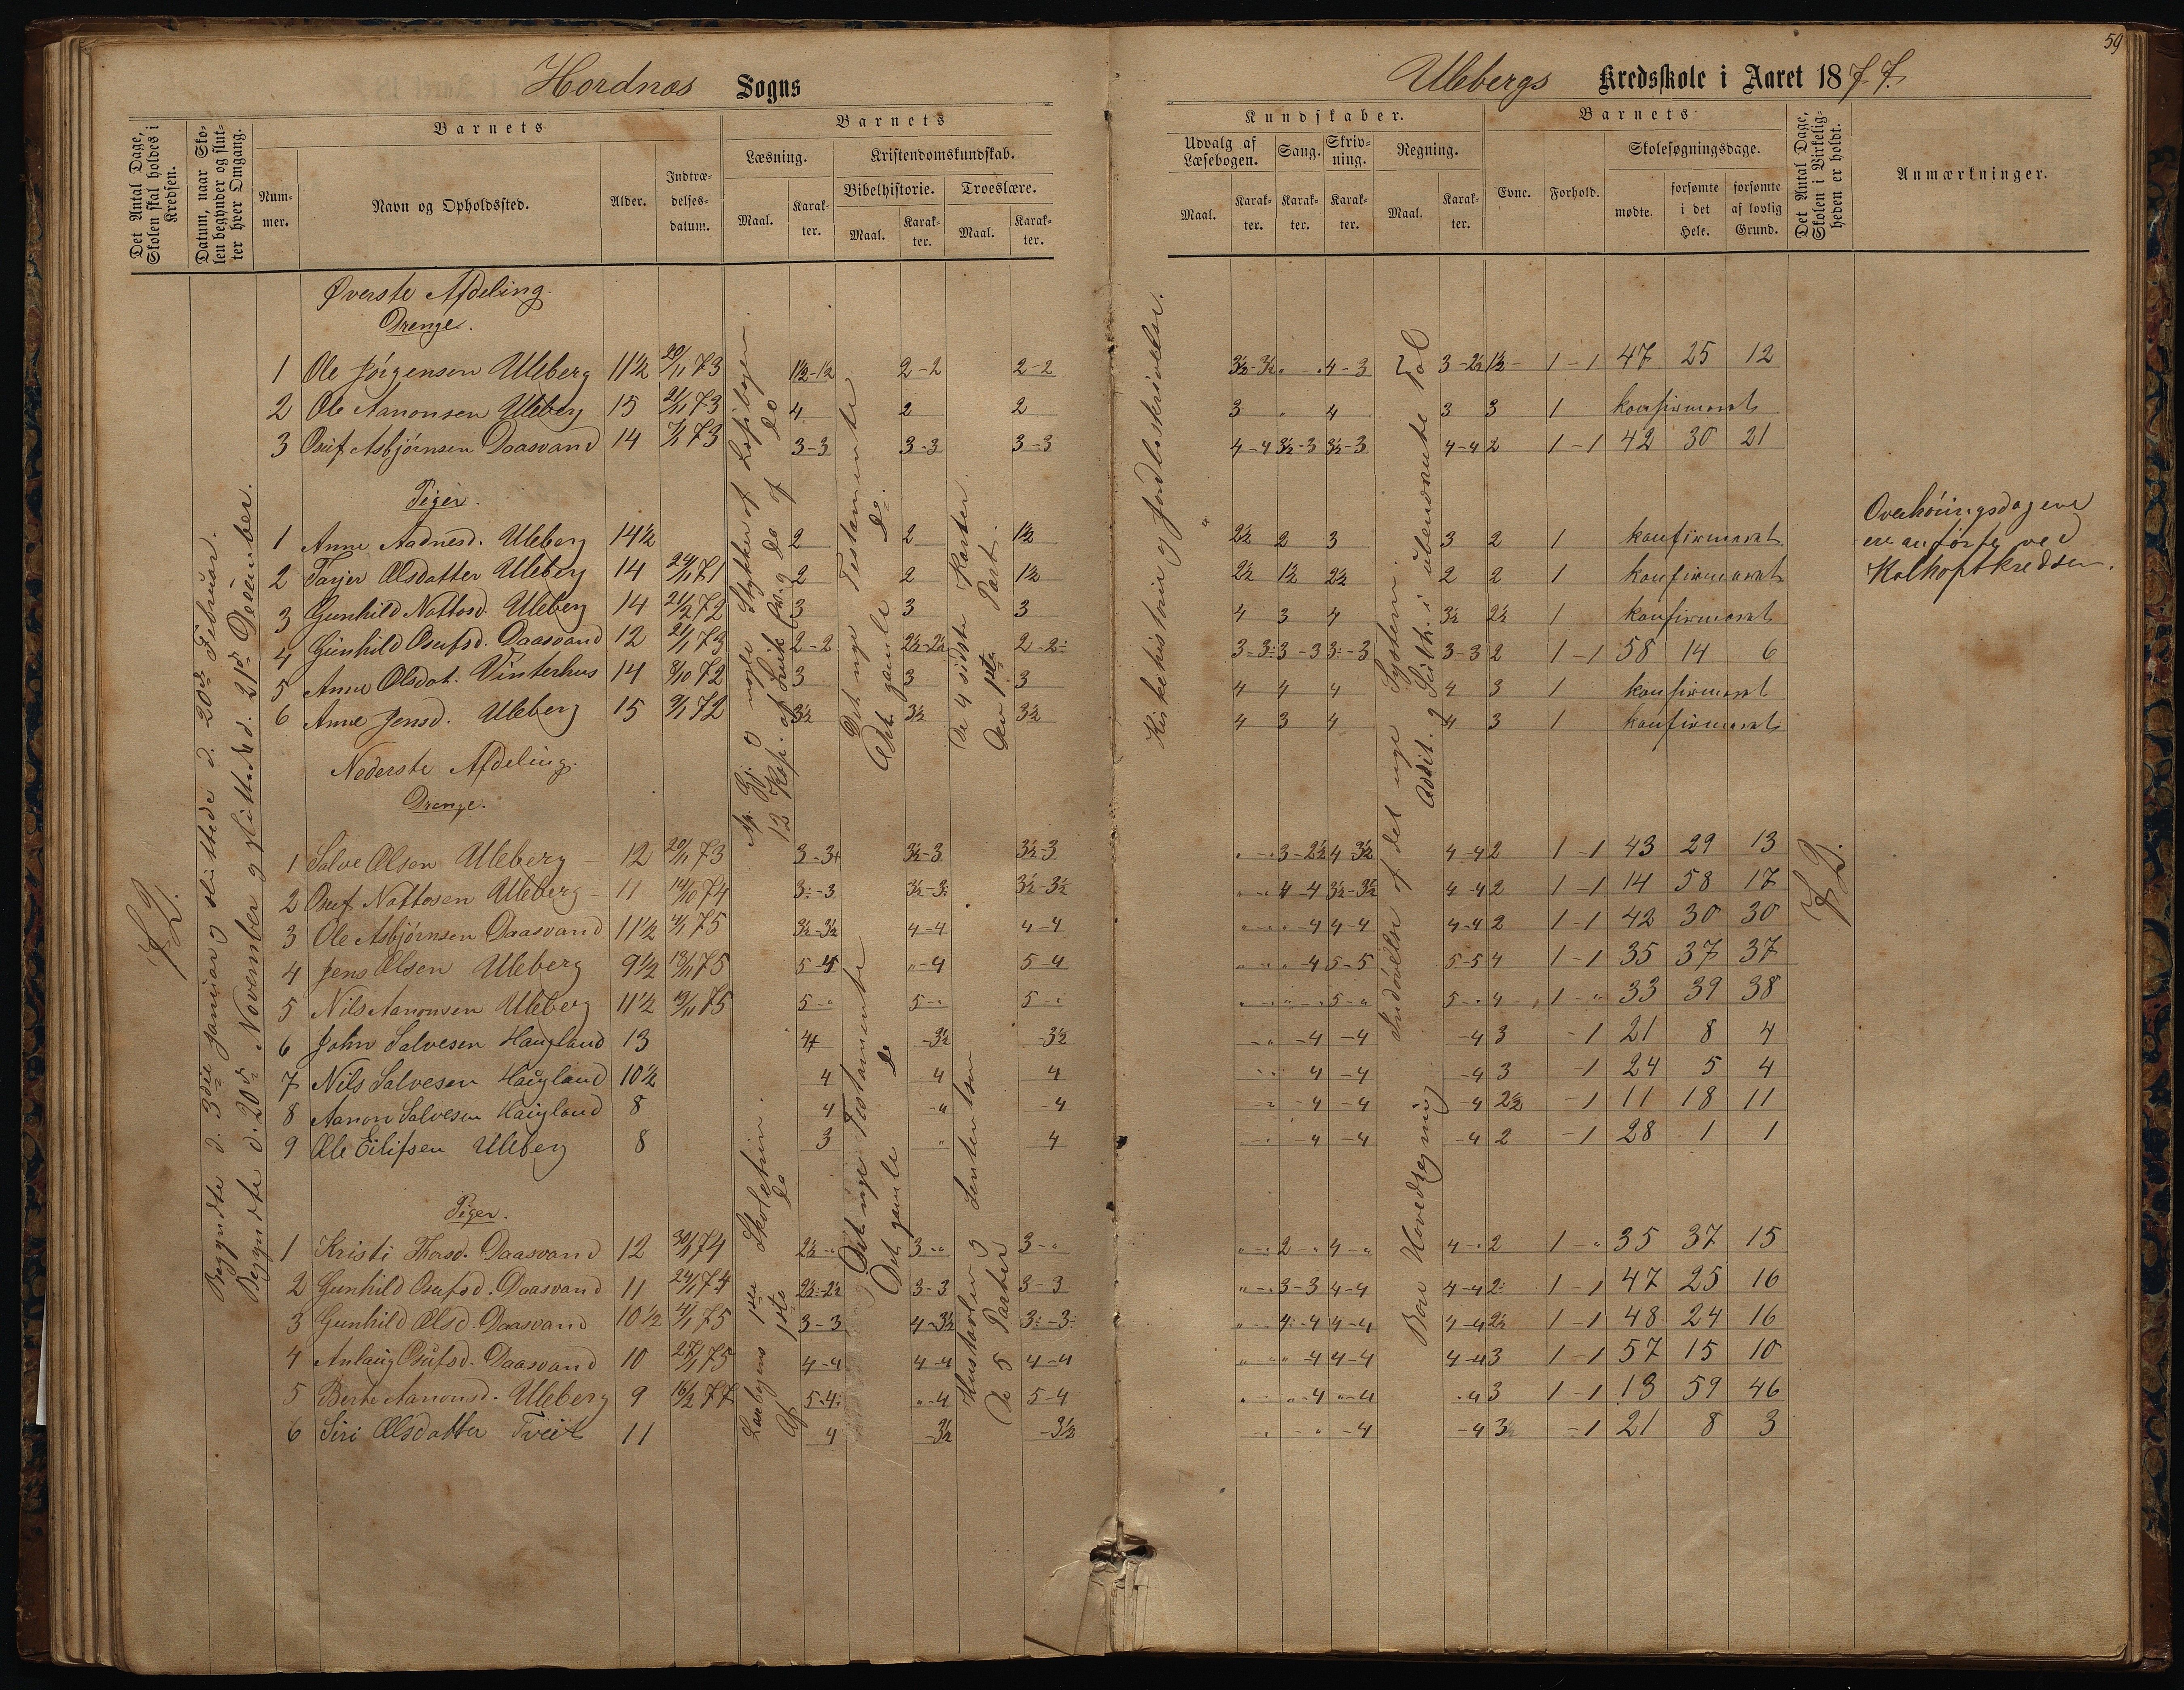 59
Hordnæs Sogns
Ulebergs Kredsskole i Aaret 1877.
Det Antal Dage, Skolen skal holdes i Kredsen.
Datum, naar Skolen begynder og slutter hver Omgang.
Barnets
Nummer.
Navn og Opholdssted.
Alder.
Indtrædelsesdatum.
Barnets
Læsning.
Maal.
Karakter.
Kristendomskundskab.
Bibelhistorie.
Maal.
Karakter.
Troeslære.
Maal.
Karakter.
Kundskaber.
Udvalg af Læsebogen.
Maal.
Karakter.
Sang.
Karakter.
Skrivning.
Karakter.
Regning.
Maal.
Karakter.
Barnets
Evne.
Forhold.
Skolesøgningsdage.
mødte.
forsømte i det Hele.
forsømte af lovlig Grund.
Det Antal Dage, Skolen i Virkeligheden er holdt.
Anmærkninger.
72.
Begyndte d. 3die Januar og sluttede d. 20de Februar.
Begyndte d. 20de November og sluttede d. 21de December.
Øverste Afdeling.
Drenge.
1 Ole Jörgensen Uleberg 11½ 20/11 73 1½-1½ 2-2 2-2 3½-3½ " " 4-3 3-2½ 1½ 1-1 47 25 12
2 Ole Aanonsen Uleberg 15 21/11 73 4 2 2 3 " 4 3 3 1 konfirmeret
3 Osuf Asbjørnsen Daasvand 14 7/1 73 3-3 3-3 3-3 4-4 3½-3 3½-3 4-4 2 1-1 42 30 21
Piger.
1 Anne Aadnesd. Uleberg 14½ 2 2 1½ 2½ 2 3 3 2 1 konfirmeret
2 Tarjer Olsdatter Uleberg 14 24/11 71 2 2 1½ 2½ 1½ 2½ 2 2 1 konfirmeret
3 Gunhild Nottosd. Uleberg 14 21/2 72 3 3 3 4 3 4 3½ 2½ 1 konfirmeret
4 Gunhild Osufsd. Daasvand 12 21/1 73 2-2 2½-2½ 2-2÷ 3-3÷ 3-3 3÷-3 3-3 2 1-1 58 14 6
5 Anne Olsdat. Vinterhus 14 8/10 72 3 3 3 4 4 4 4 3 1 konfirmeret
6 Anne Jensd. Uleberg 15 9/1 72 3½ 3½ 3½ 4 3 4 4 3 1 konfirmeret
Det nye Testamente
Det gamle do.
De 4 sidste Parter.
Den 1ste Part.
Kirkehistorie og Jordbeskrivelse.
Indøvelse af det nye System.
Addit. og Subth. i ubenævnte Tal
Overhöringsdagene
ere anförte ved
Kalhoftkredsen.
Nederste Afdeling.
Drenge.
1 Salve Olsen Uleberg 12 20/11 73 3-3+ 3½-3 3½-3 " " 3-2½ 4-3½ 4-4 2 1-1 43 29 13
2 Osuf Nottosen Uleberg 11 14/10 74 3÷-3 3½-3÷ 3½-3½ " " 4-4 3½-3½ 4-4 2 1-1 14 58 17
3 Ole Asbjørnsen Daasvand 11½ 4/1 75 3½-3½ 4-4 4-4 " " "-4 4-4 4-4 2 1-1 42 30 30
4 Jens Olsen Uleberg 9½ 13/11 75 5-4 "-4 5-4 " " "-4 5-5 5-5 4 1-1 35 37 37
5 Nils Aanonsen Uleberg 11½ 19/11 75 5-" 5-" 5-" " " " " 5-" 5-" 4 1-" 33 39 38
6 John Salvesen Haugland 13 4+ -3½ -3½ -" -4 -4 -4 3 -1 21 8 4
7 Nils Salvesen Haugland 10½ 4 4 4 " 4 -4 -4 3 -1 24 5 4
8 Aanon Salvesen Haugland 8 4 -" -4 -" -4 -4 -4 2½ -1 11 18 11
9 Ole Eilifsen Uleberg 8 3 " 4 -" -4 -4 -4 2 -1 28 1 1
72.
Piger.
1 Kristi Thosd. Daasvand 12 30/1 74 2½-" 3-" 3-" "-" 2-" 4-" 4-" 2 1-" 35 37 15
2 Gunhild Osufsd. Daasvand 11 24/1 74 2½-2½ 3-3 3-3 "-" 3-3 4-4 4-4 2÷ 1-1 47 25 16
3 Gunhild Olsd. Daasvand 10½ 4/1 75 3-3 4-3½ 3÷-3÷ "-" 4-4 4-4 4-4 2½ 1-1 48 24 16
4 Anlaug Osufsd. Daasvand 10 27/1 75 4-4 4-4 4-4 "-" "-4 4-4 4-4 3 1-1 57 15 10
5 Berte Aanonsd. Uleberg 9 16/2 77 5-4÷ "-4 5-4 "-" "-4 "-4 "-4 3 1-1 13 59 46
6 Siri Olsdatter Tveit 11 4 -3½ -3½ -" -" -4 -4 3½ -1 21 8 3
Læsbogens 1ste Skoletrin.
Af 1ste do
Det nye Testamente
Det gamle do
Hustavlen og Sententsen
De 5 Parter
Bare Hovedregning